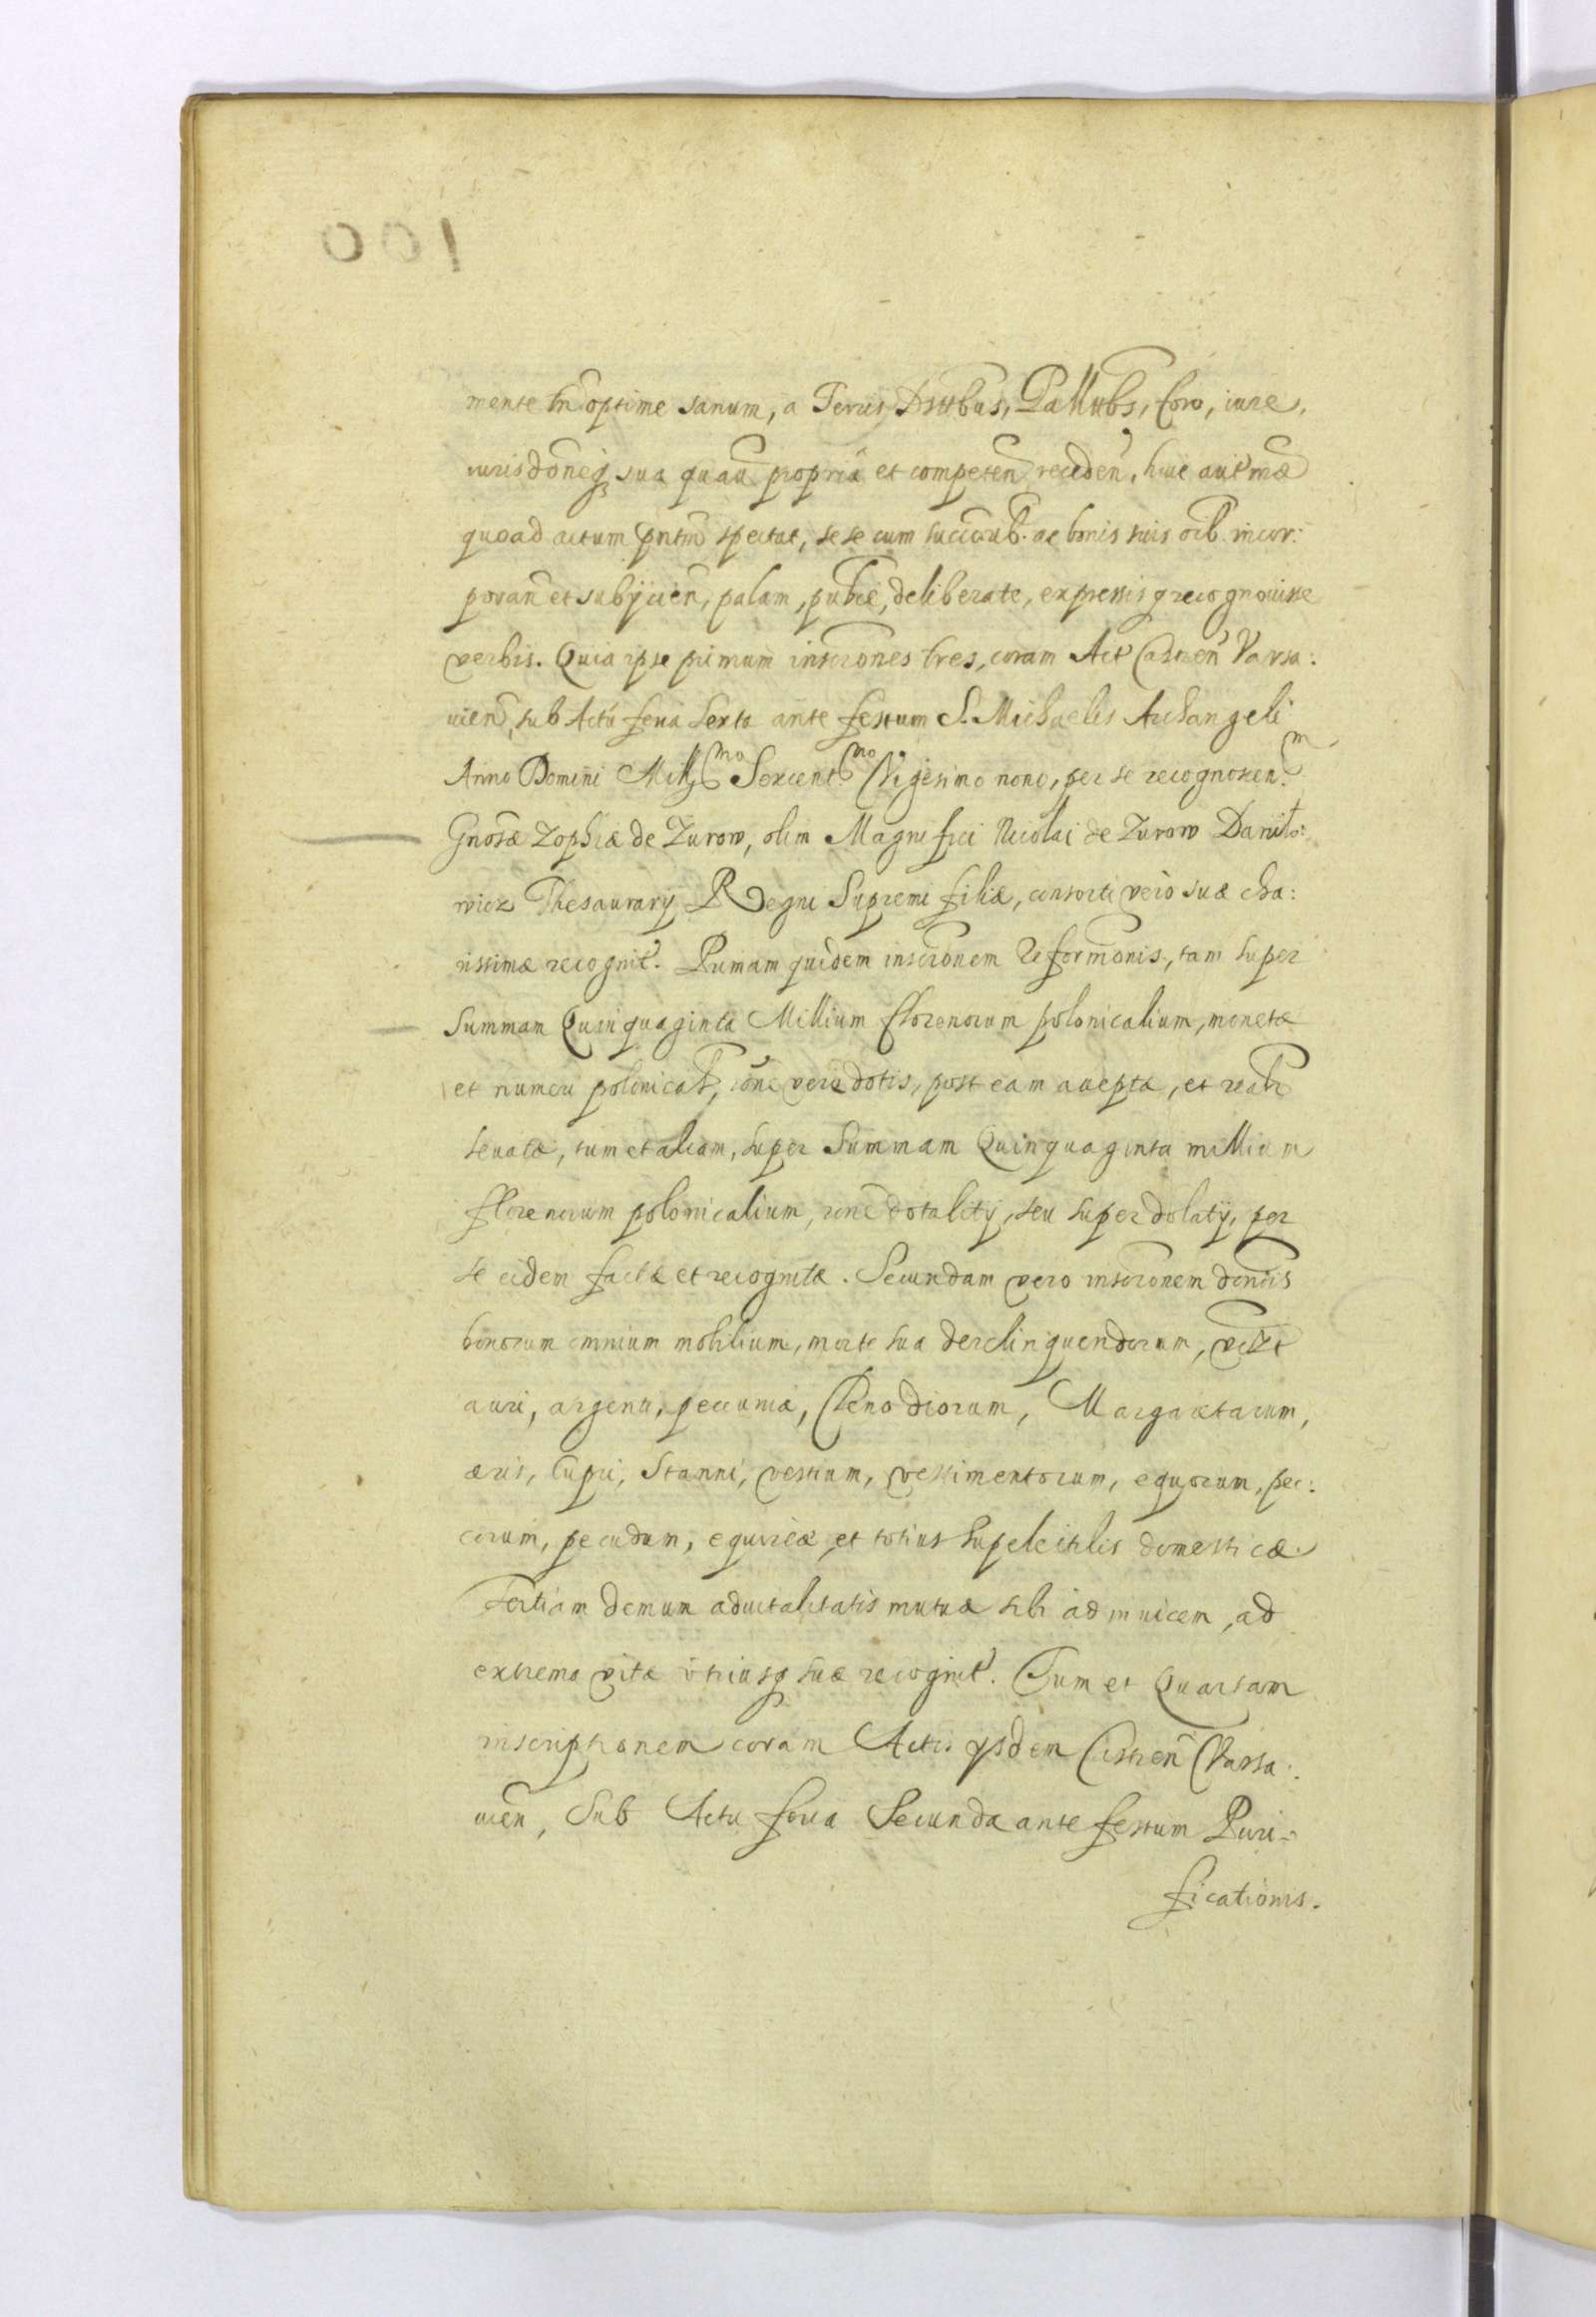 100
mente tñ optime sanum, a Terris Distbus, Pallubs, foro, iure,
iurisdoneq sua quau propria et competeñ recedeñ, huic aut mae
quoad actum pntm spectat, se se cum succorib. ac bonis suis oib. incor:
porañ et subijcieñ, palam, publice, deliberate, expressisq recognouisse
verbis. Quia ipse primum inscriones tres, coram Act Castreñ Varsa:
uieñ, sub Actu feria Sexta ante festum S. Michaelis Archangeli
Anno Domini Mill mo Sexcent mo Vigesimo nono, per se recognoscen m
Gnosae Zophiae de Zurow, olim Magnifici Nicolai de Zurow Danilo:
wicz Thesaurarij Regni Supremi filiae, consorti vero suae cha:
rissimae recognit. Primam quidem inscrionem Reformonis, tam super
Summam Quinquaginta Millium florenorum polonicalium, monetae
et numeri polonical, rone vero dotis, post eam acceptae, et realr
leuatae, tum et aliam, super Summam Quinquaginta millium
florenorum polonicalium, rone dotalitij, seu super dotalij, per
se eidem factae et recognitae. Secundam vero inscrionem donois
bonorum omnium mobilium, morte sua derelinquendorum, vidzt
auri, argenti, pecuniae, Clenodiorum, Margaretarum,
aeris, Cupri, Stanni, vestium, vestimentorum, equorum, pec:
corum, pecudum, equireae, et totius Supelectilis domesticae.
Tertiam demum aduitalitatis mutuae sibi ad inuicem, ad
extrema vitae vtriusq suae recognit. Tum et Quartam
inscriptionem coram Actis ijsdem Castreñ Varsa:
uieñ, Sub Actu feria Secunda ante festum Puri=
ficationis.